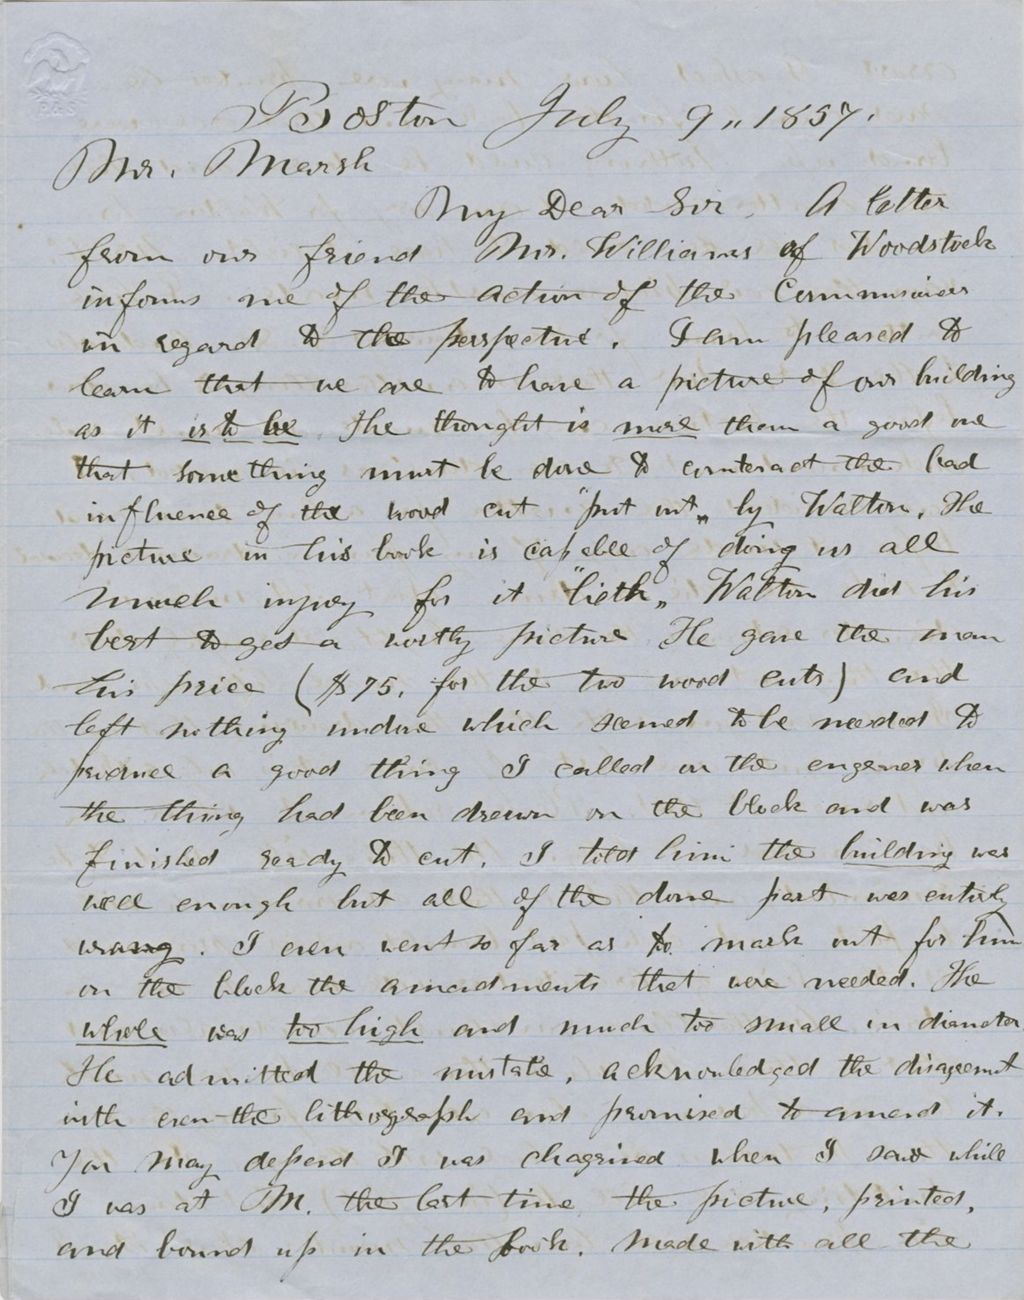 P&S
Boston July 9,, 1857.
Mr. Marsh
My Dear Sir. A letter
from our friend Mr. Williams of Woodstock
informs me of the action of the Commissioner
in regard to the perspective. I am pleased to
learn that we are to have a picture of our building
as it is to be. The thought is more than a good one
that something must be done to counteract the bad
influence of the wood cut "put out„ by Walton. The
picture in his book is capable of doing us all
much injury for it "lieth„ Walton did his
best to get a worthy picture He gave the man
his price ($75. for the two wood cuts) and
left nothing undone which seemed to be needed to
produce a good thing I called on the engraver when
the thing had been drawn on the block and was
finished ready to cut. I told him the building was
well enough but all of the dome part was entirely
wrong. I even went so far as to mark out for him
on the block the amendments that were needed. The
whole was too high and much too small in diameter
He admitted the mistake, acknowledged the disagreement
with even the lithograph and promised to amend it.
You may depend I was chagrined when I saw while
I was at M. the last time the picture, printed,
and bound up in the book. Made with all the